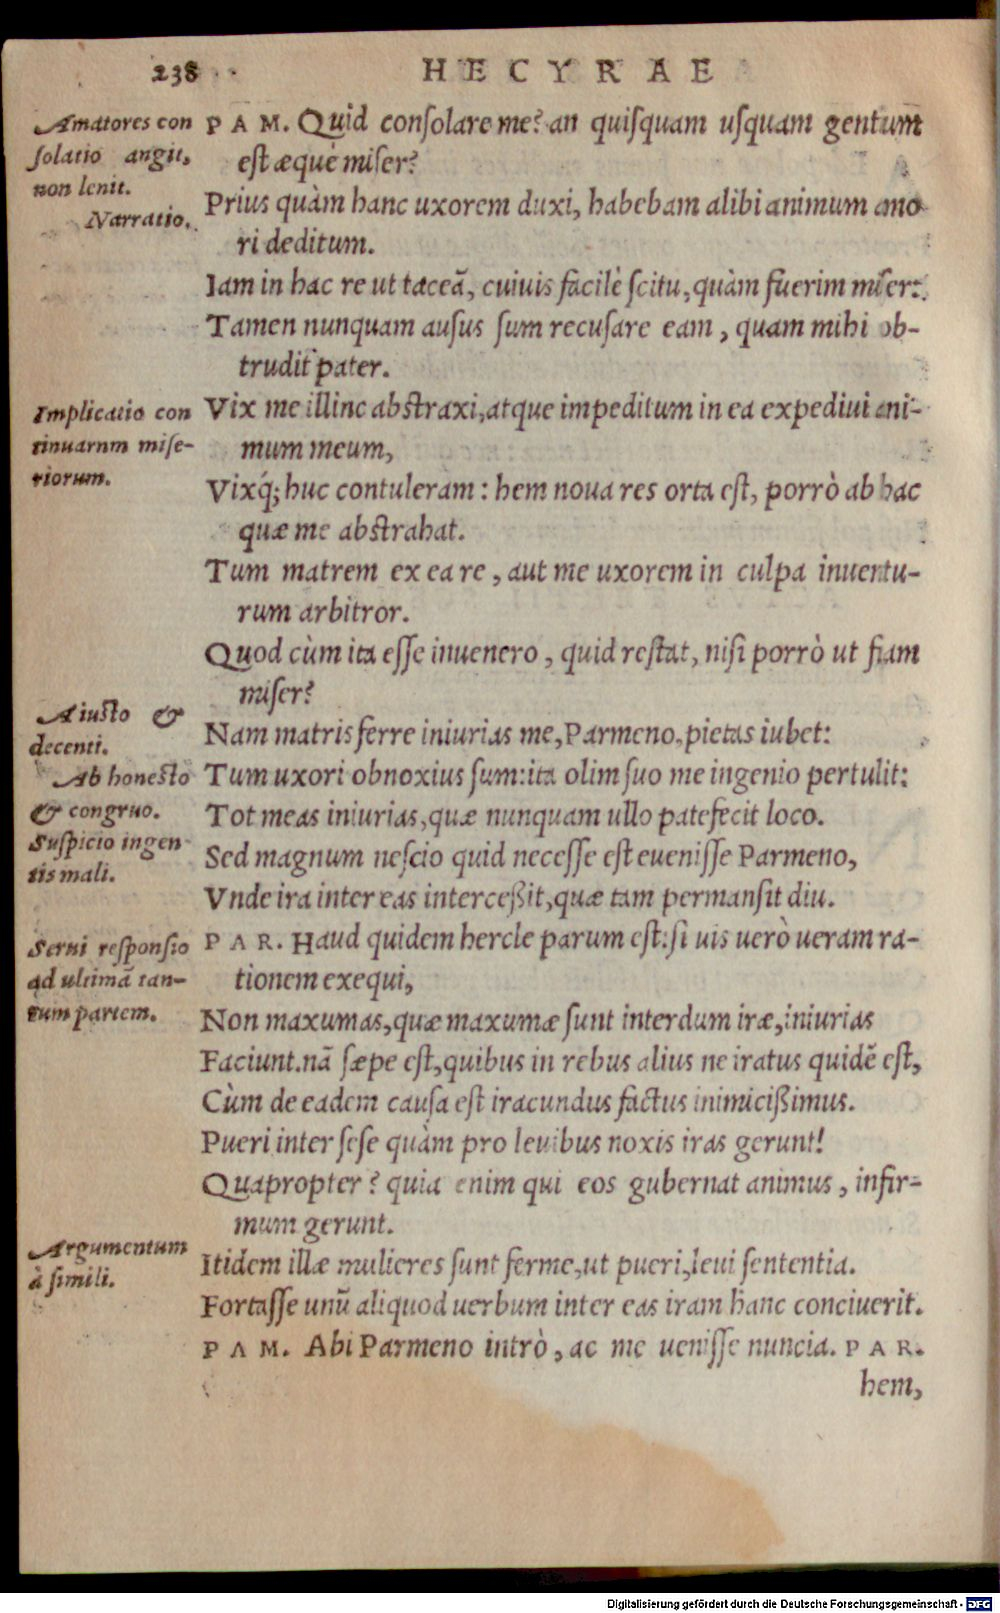 238
HECYRAE
Amatores con
solatio angit,
non lenit.
Narratio.
PAM. Quid consolare me? an quisquam usquam gentum
est æquè miser?
Prius quàm hanc uxorem duxi, habebam alibi animum amo
ri deditum.
Iam in hac re ut taceã, cuivis facilè scitu, quàm fuerim miser:
Tamen nunquam ausus sum recusare eam, quam mihi ob-
trudit pater.
Implicatio con
tinuarum mise-
riorum.
Vix me illinc abstraxi, atque impeditum in ea expediui ani-
mum meum,
Vixq́; huc contuleram: hem noua res orta est, porrò ab hac
quæ me abstrahat.
Tum matrem ex ea re, aut me uxorem in culpa inuentu-
rum arbitror.
Quod cùm ita esse inuenero, quid restat, nisi porrò ut fiam
miser?
A iusto &
decenti.
Ab honesto
& congruo.
Suspicio ingen
tis mali.
Nam matris ferre iniurias me, Parmeno, pietas iubet:
Tum uxori obnoxius sum: ita olim suo me ingenio pertulit:
Tot meas iniurias, quæ nunquam ullo patefecit loco.
Sed magnum nescio quid necesse est euenisse Parmeno,
Vnde ira inter eas interceßit, quæ tam permansit diu.
Serui responsio
ad ultimã tan-
tum partem.
PAR. Haud quidem hercle parum est: si uis uerò ueram ra-
tionem exequi,
Non maxumas, quæ maxumæ sunt interdum iræ, iniurias
Faciunt. nã sæpe est, quibus in rebus alius ne iratus quidẽ est,
Cùm de eadem causa est iracundus factus inimicißimus.
Pueri inter sese quàm pro leuibus noxis iras gerunt!
Quapropter? quia enim qui eos gubernat animus, infir-
mum gerunt.
Argumentum
à simili.
Itidem illæ mulieres sunt ferme, ut pueri, leui sententia.
Fortasse unũ aliquod uerbum inter eas iram hanc conciuerit.
PAM. Abi Parmeno intrò, ac me uenisse nuncia. PAR.
hem,
Digitalisierung gefördert durch die Deutsche Forschungsgemeinschaft - DFG